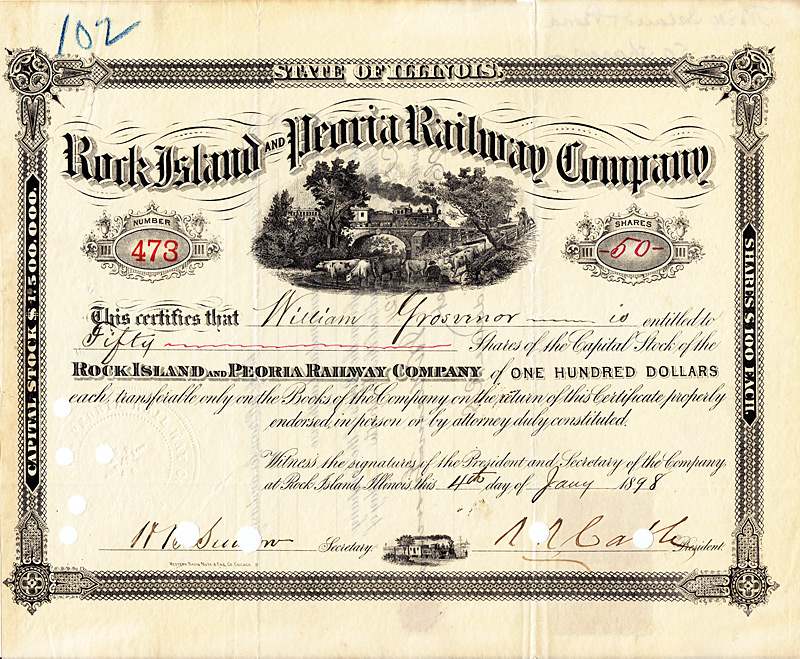 102
STATE OF ILLINOIS.
Rock Island AND Peoria Railway Company
NUMBER
473
SHARES
-50-
CAPITAL STOCK $1,500,000.
SHARES $100 EACH.
This certifies that William Grosvenor is entitled to
Fifty Shares of the Capital Stock of the
ROCK ISLAND AND PEORIA RAILWAY COMPANY of ONE HUNDRED DOLLARS
each, transferable only on the Books of the Company on the return of this Certificate properly
endorsed, in person or by attorney duly constituted.
Witness the signatures of the President and Secretary of the Company,
at Rock Island, Illinois, this 4th day of Jany 1898
Secretary. R R Cable President
WESTERN BANK NOTE & ENG. CO. CHICAGO